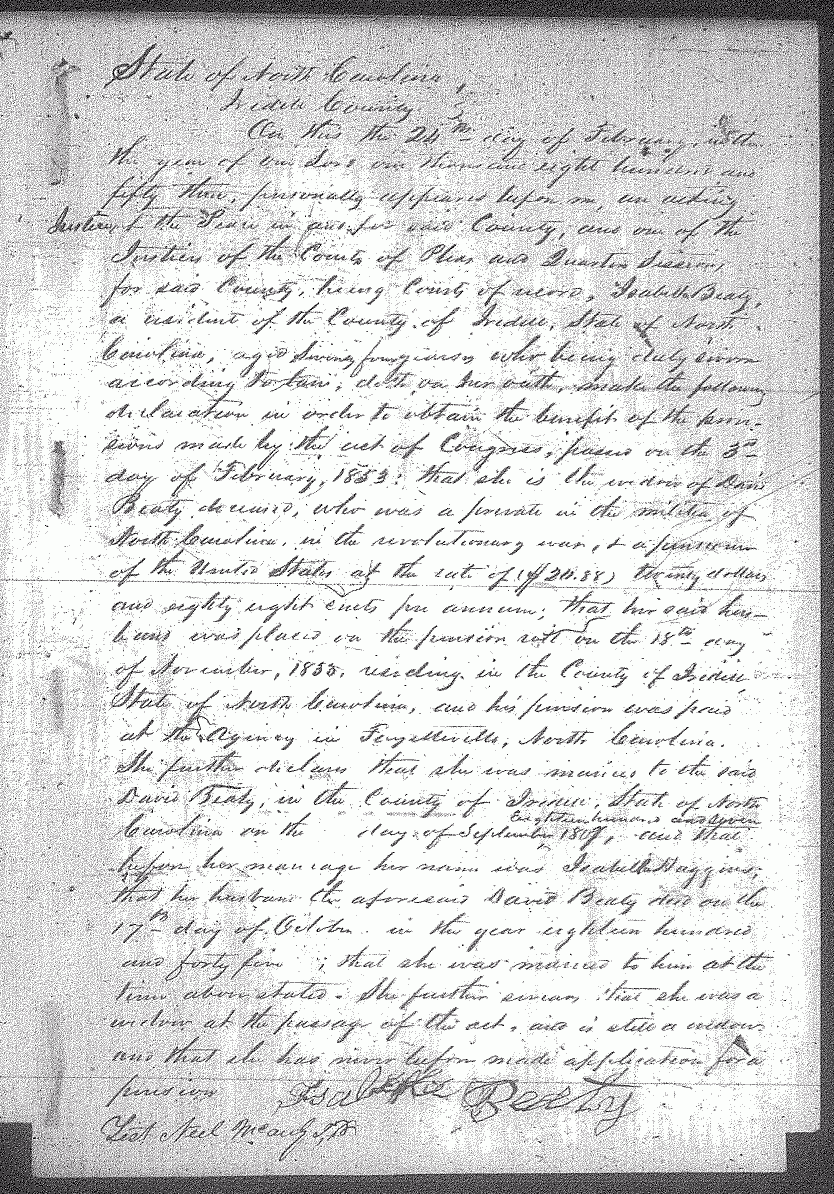 State of North Carolina,
Iredell County
On this the 24th day of February, in the
the year of our Lord one thousand eight hundred and
fifty three, personally appeared before me, an acting
Justice of the Peace in and for said County, and one of the
Justices of the Court of Pleas and Quarter Sessions,
for said County, being Court of record, Isabella Beaty,
a resident of the County of Iredell, State of North
Carolina, aged Seventy four years who being duly sworn
according to law, doth, on her oath, make the following
declaration in order to obtain the benefit of the provi-
sions made by the act of Congress, passed on the 3rd
day of February, 1853: that she is the widow of David
Beaty deceased, who was a private in the militia of
North Carolina, in the revolutionary war, & a pensioner
of the United States at the rate of ($20.88) twenty dollars
and eighty eight cents per annum; that her said hus-
band was placed on the pension roll on the 18th day
of November, 1833, residing in the County of Iredell,
State of North Carolina, and his pension was paid
at the Agency in Fayetteville, North Carolina.
She further declares that she was married to the said
David Beaty, in the County of Iredell, State of North
Eighteen hundred and seven
Carolina on the day of September 1807, and that
before her marriage her name was Isabella Haggins;
that her husband the aforesaid David Beaty died on the
17th day of October in the year eighteen hundred
and forty five ; that she was married to him at the
time above stated. She further swears that she was a
widow at the passage of the act, and is still a widow
and that she has never before made application for a
pension
Isabella Beaty
Test Neel J.P.